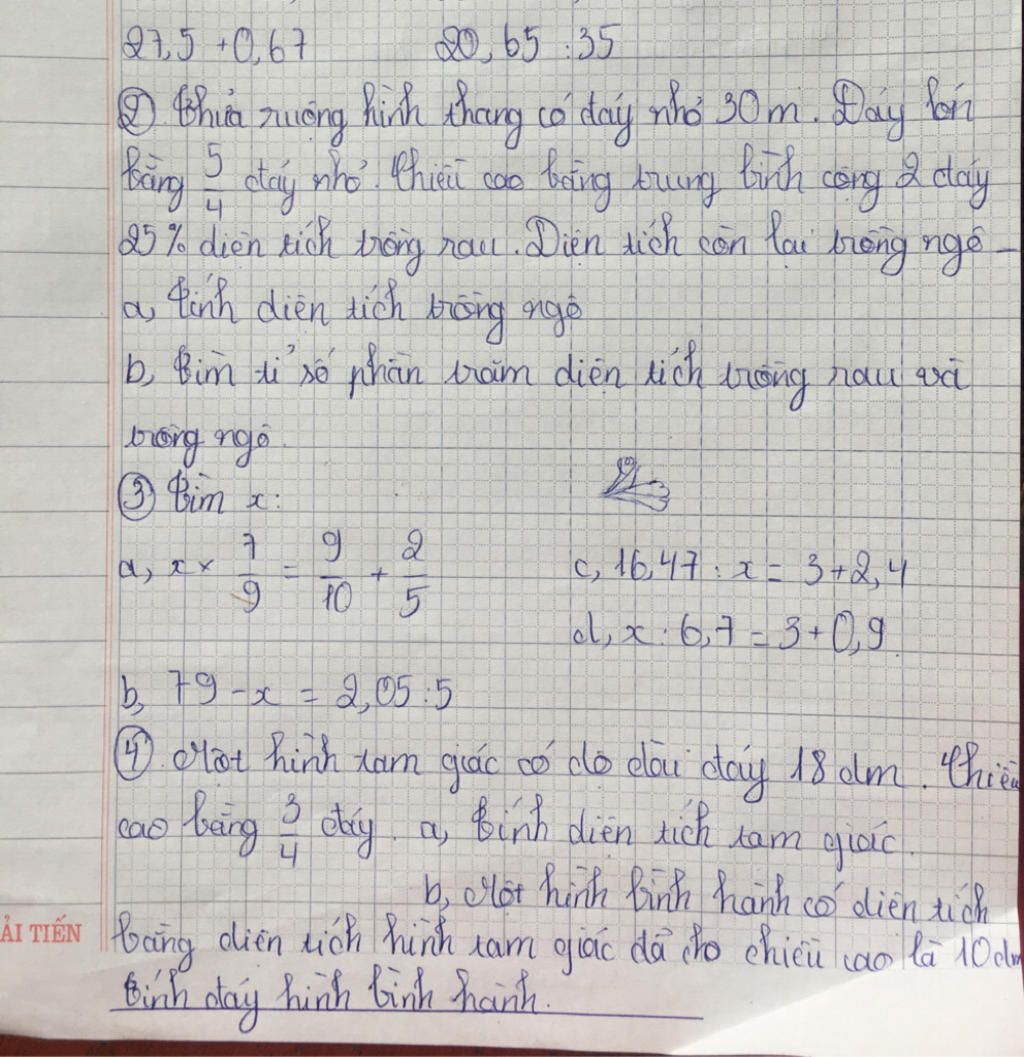 27,5 + 0,67 20,65 : 35
② Thửa ruộng hình thang có đáy nhỏ 30m. Đáy lớn
bằng 5/4 đáy nhỏ. Chiều cao bằng trung bình cộng 2 đáy
25% diện tích trồng rau. Diện tích còn lại trồng ngô
a, Tính diện tích trồng ngô
b, Tìm tỉ số phần trăm diện tích trồng rau và
trồng ngô.
③ Tìm x:
a, x × 7/9 = 9/10 + 2/5 c, 16,47 : x = 3 + 2,4
d, x : 6,7 = 3 + 0,9
b, 79 - x = 2,05 : 5
④ Một hình tam giác có độ dài đáy 18 dm. Chiều
cao bằng 3/4 đáy. a, Tính diện tích tam giác.
b, Một hình bình hành có diện tích
bằng diện tích hình tam giác đã cho chiều cao là 10 dm
Tính đáy hình bình hành.
ẢI TIẾN